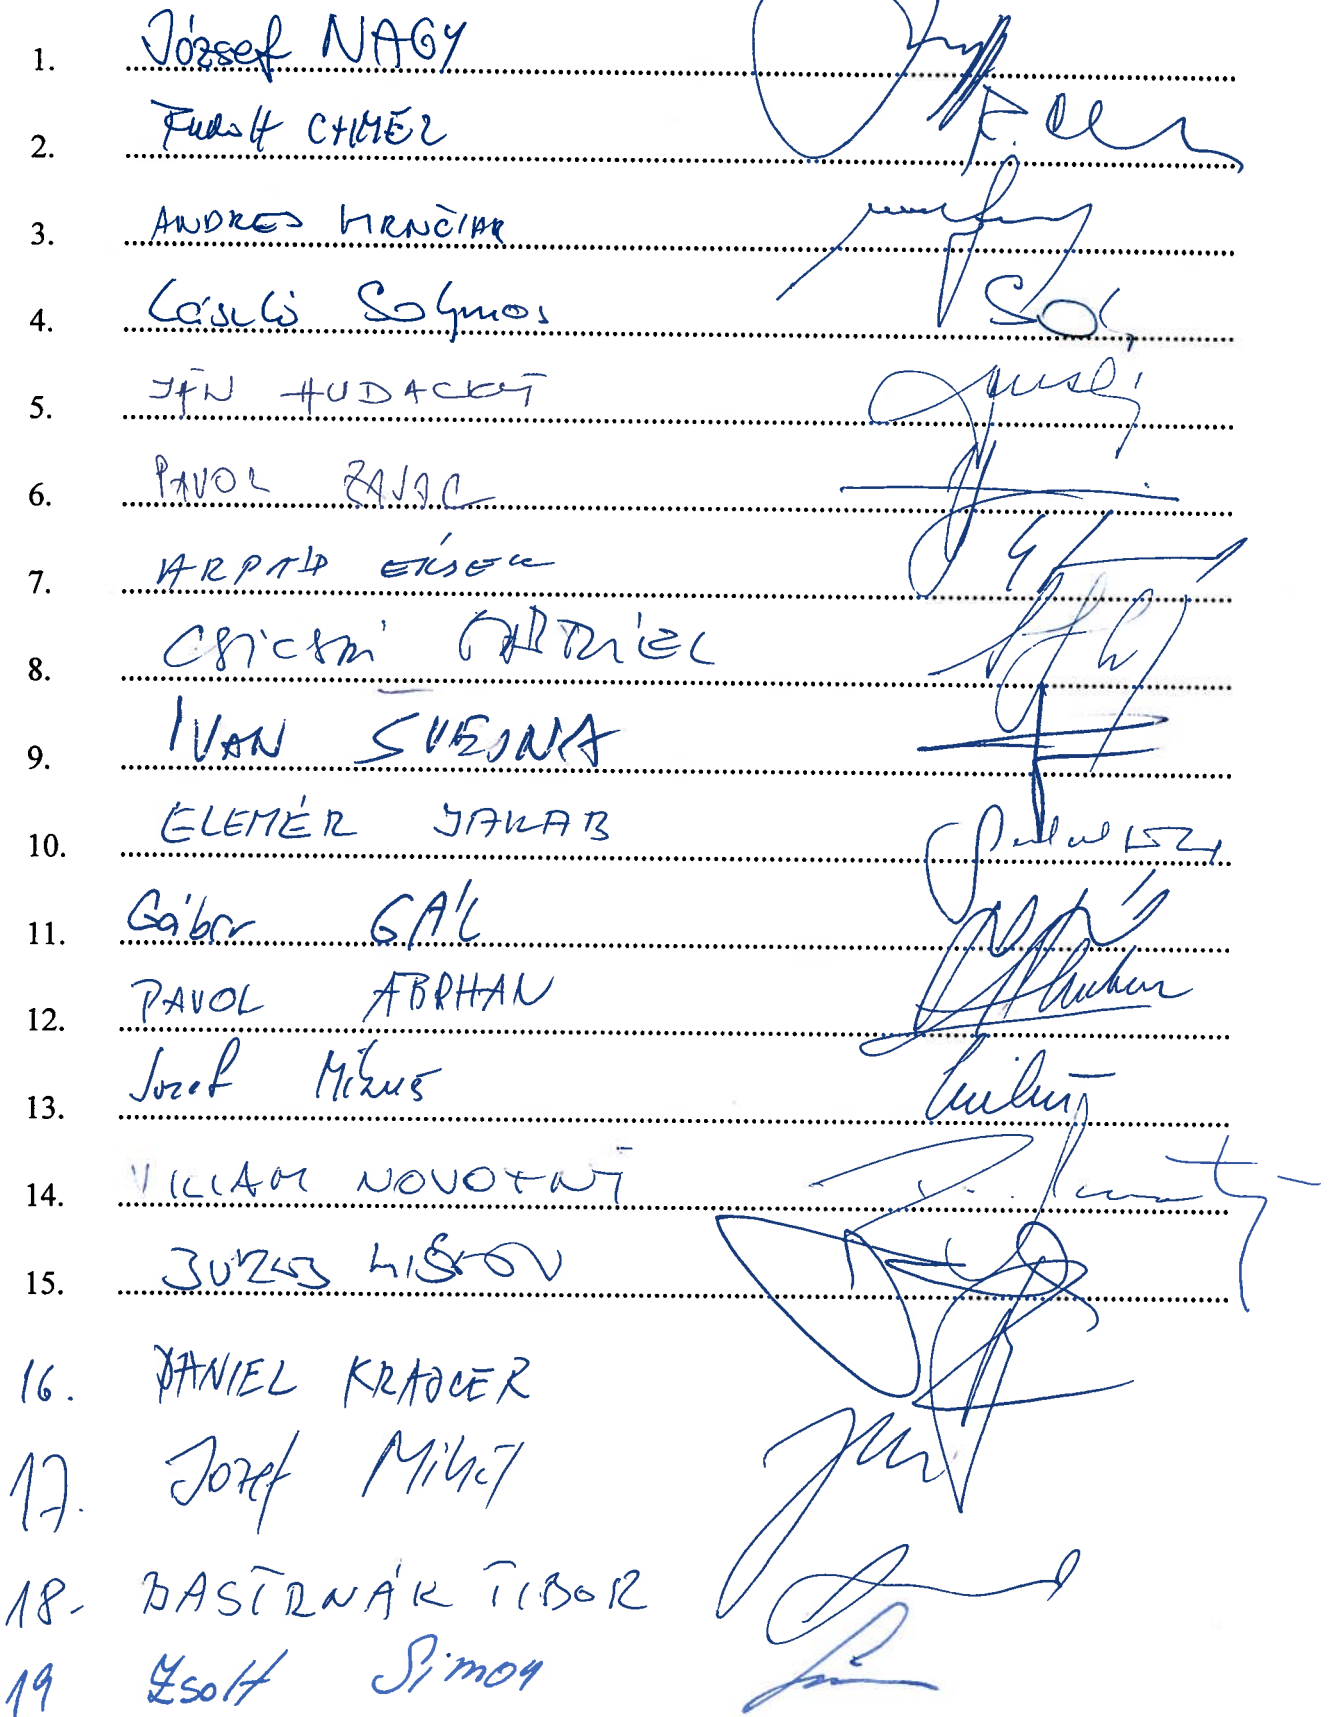 1. József NAGY
2. Rudolf CHMEL
3. ANDREJ HRNČIAR
4. László Solymos
5. JÁN HUDACKÝ
6. PAVOL ZAJAC
7. ARPÁD ÉRSEK
8. CSICSAI GÁBRIEL
9. IVAN ŠVEJNA
10. ELEMÉR JAKAB
11. Gábor GÁL
12. PAVOL ABRHAN
13. Jozef Mikuš
14. VILIAM NOVOTNÝ
15. LIŠKA
16. DANIEL KRAJCER
17. Jozef
18. BASTRNÁK TIBOR
19 Zsolt Simon